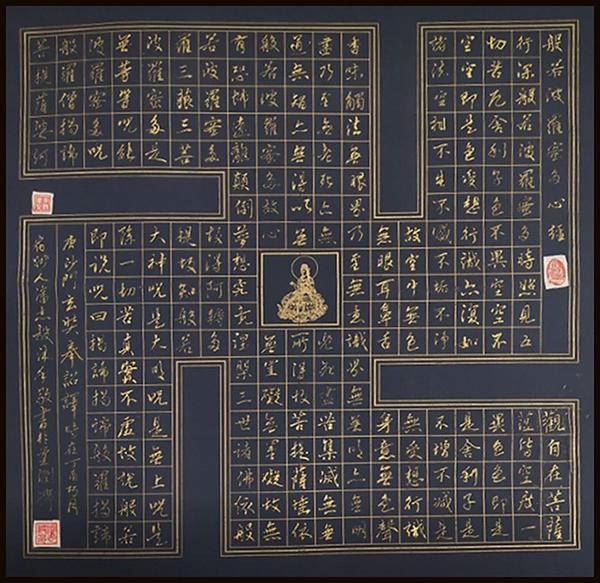 般若波羅蜜多心經
觀自在菩薩
行深般若波羅蜜多時照見五
蘊皆空度一
切苦厄舍利子色不異空空不
異色色即是
空空即是色受想行識亦復如
是舍利子是
諸法空相不生不滅不垢不淨
不增不減是
故空中無色
無受想行識
無眼耳鼻舌
身意無色聲
香味觸法無眼界乃至無意識界無
無明亦無無明
盡乃至無老死亦無
老死盡無苦集滅
道無智亦無得以無
所得故菩提薩埵依
般若波羅蜜多故心
無罣礙無罣礙故無
有恐怖遠離顛倒夢想究竟涅槃三世諸佛依般
若波羅蜜多
故得阿耨多
羅三藐三菩
提故知般若
波羅蜜多是
大神咒是大明咒是無上咒是
無等等咒能
除一切苦真實不虛故說般若
波羅蜜多咒
即說咒曰揭諦揭諦般羅揭諦
般羅僧揭諦
菩提薩婆訶
唐沙門玄奘奉詔譯 時在丁酉
人潘志毅沐手敬書於